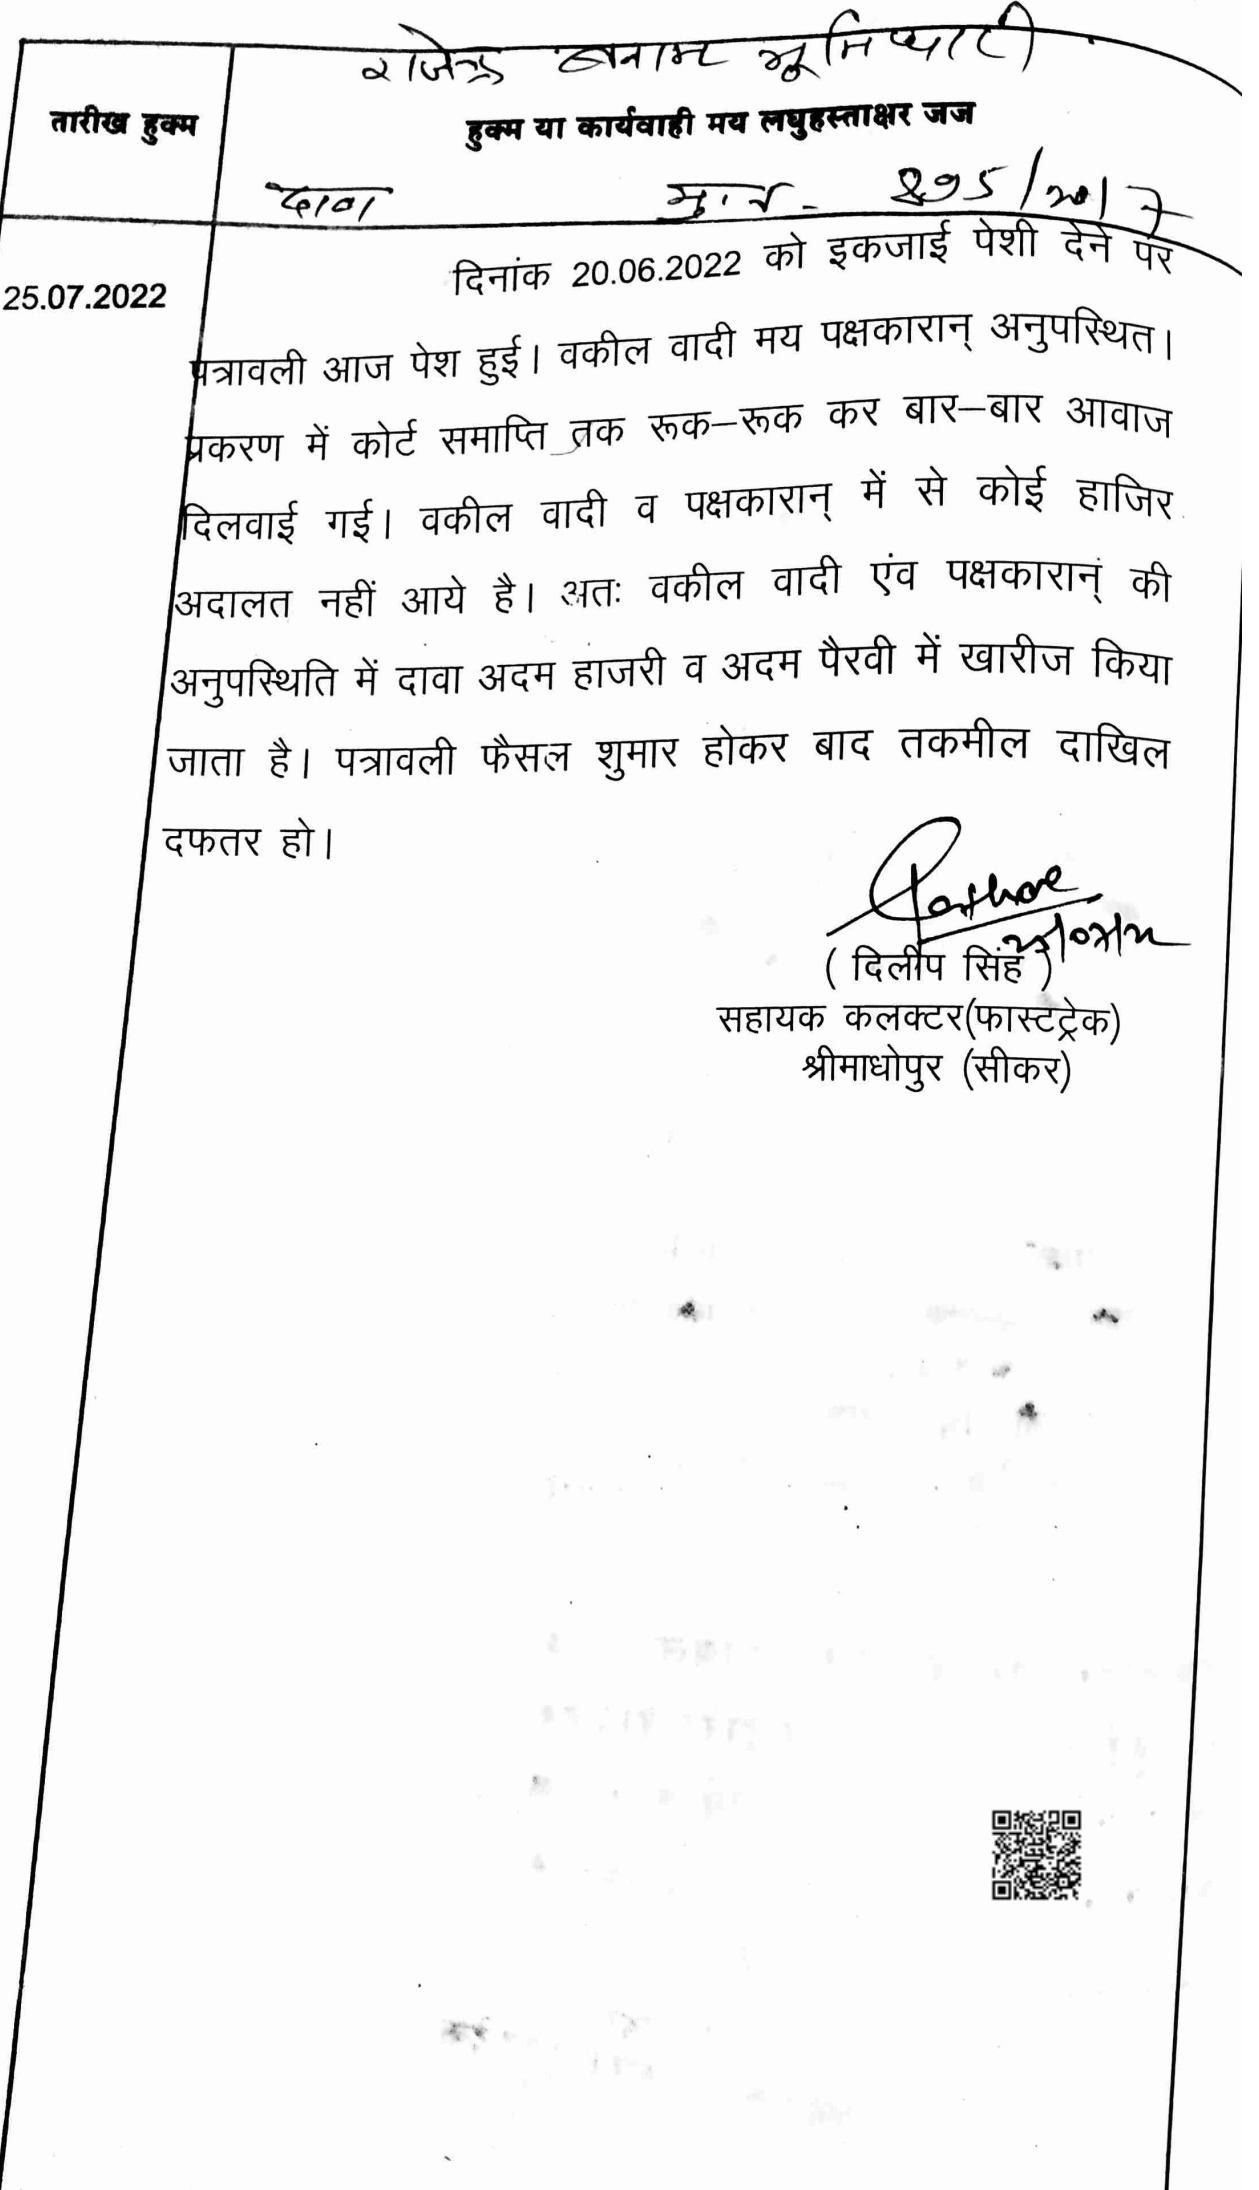 राजेन्द्र बनाम भूमि
तारीख हुक्म
हुक्म या कार्यवाही मय लघुहस्ताक्षर जज
दावा मु.न. - 295/2017
25.07.2022
दिनांक 20.06.2022 को इकजाई पेशी देने पर
पत्रावली आज पेश हुई। वकील वादी मय पक्षकारान् अनुपस्थित।
प्रकरण में कोर्ट समाप्ति तक रूक–रूक कर बार–बार आवाज
दिलवाई गई। वकील वादी व पक्षकारान् में से कोई हाजिर
अदालत नहीं आये है। अतः वकील वादी एंव पक्षकारान् की
अनुपस्थिति में दावा अदम हाजरी व अदम पैरवी में खारीज किया
जाता है। पत्रावली फैसल शुमार होकर बाद तकमील दाखिल
दफतर हो।
( दिलीप सिंह )
सहायक कलक्टर(फास्टट्रेक)
श्रीमाधोपुर (सीकर)